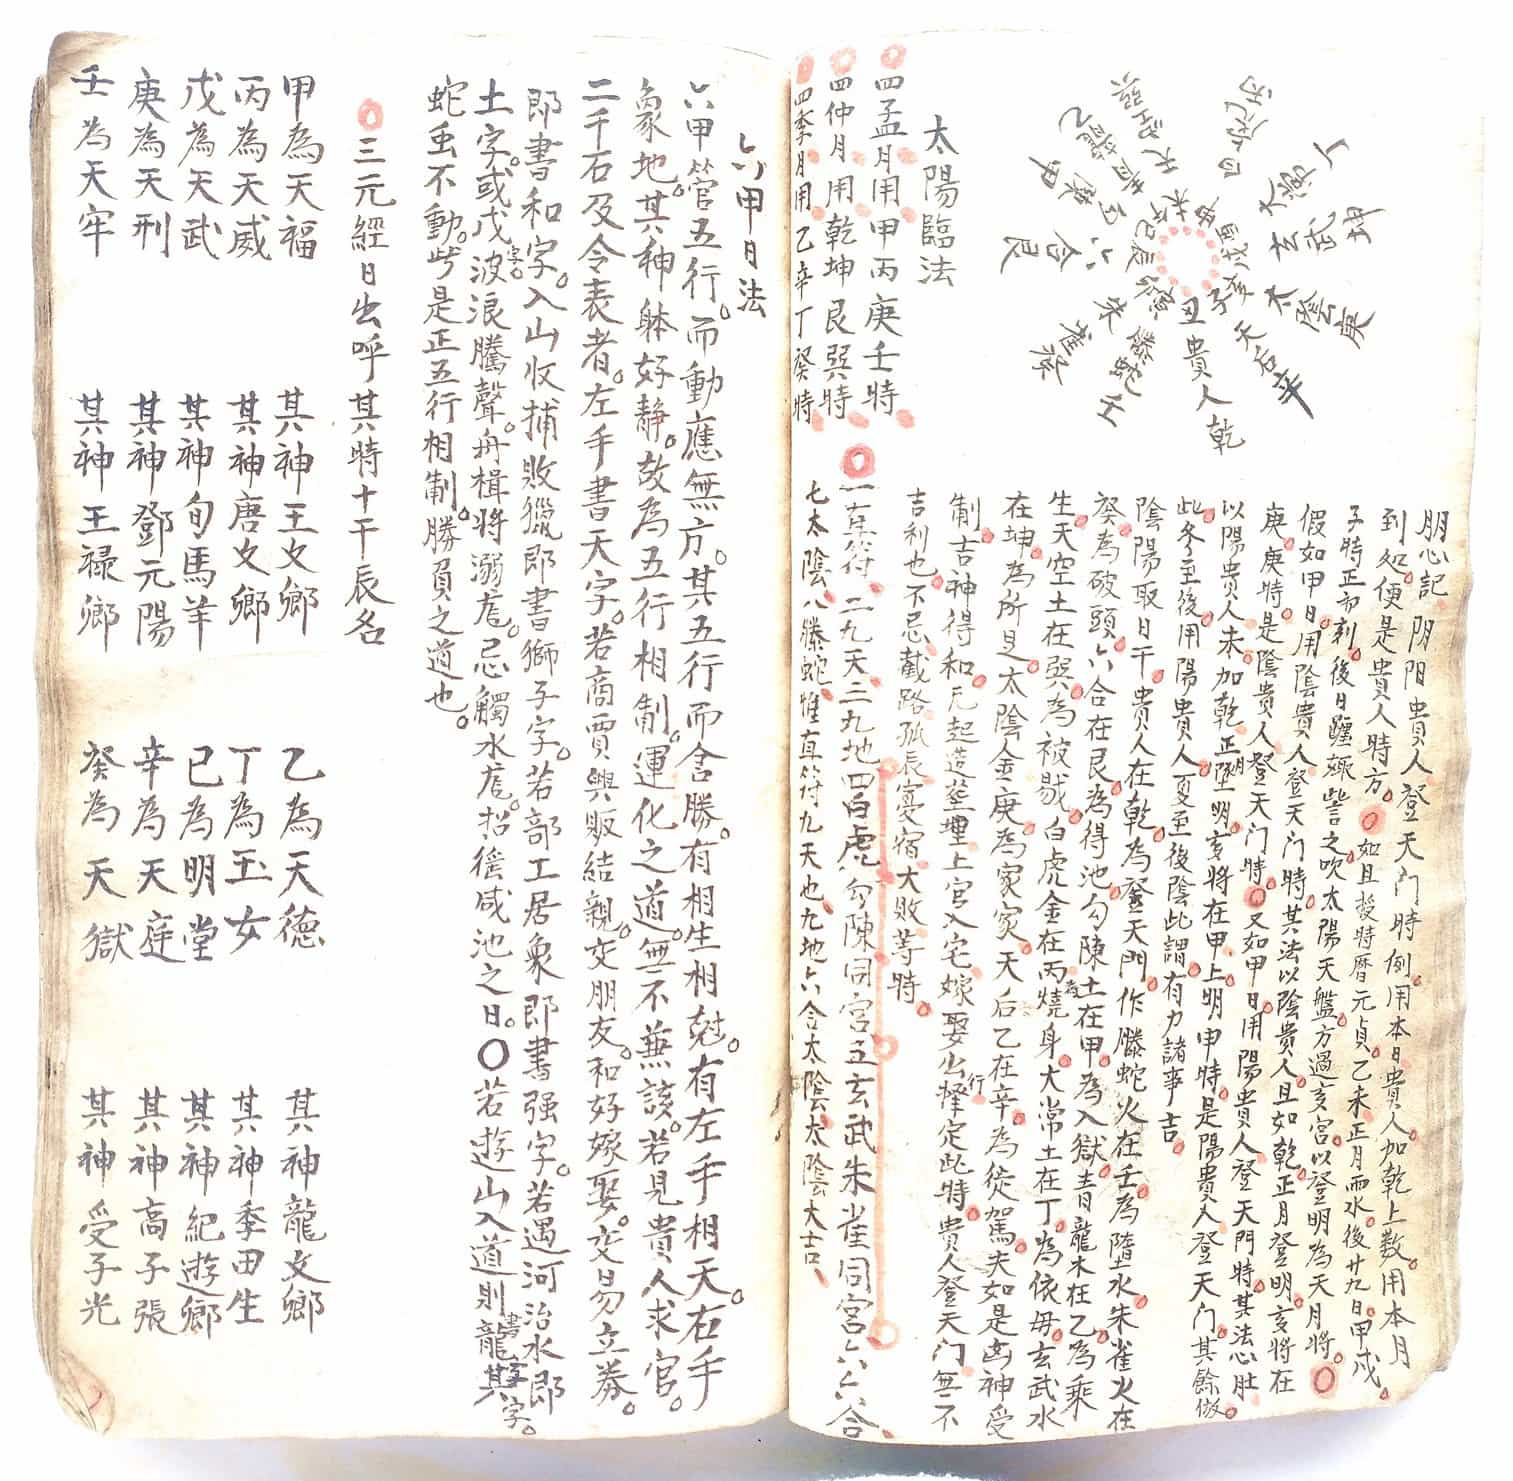 朋心記 阴阳貴人登天门時例用本日貴人加乾上数用本月
到処便是貴人時方 如且授時曆元貞乙未正月雨水後廿九日甲戌
子時正初刻後日躔娵訾之次太陽天盤方過亥宮以登明為天月將
假如甲日用陰貴人登天门時其法以陰貴人且如乾正月登明亥將在
庚庚時是陰貴人登天门時 又如甲日用陽貴人登天門時其法心肚
以陽貴人未加乾正月登明亥將在甲上明申時是陽貴人登天门其餘倣
此冬至後用陽貴人夏至後陰此謂有力諸事吉
陰陽取日干貴人在乾為登天門作螣蛇火在壬為墮水朱雀火在
癸為破頭六合在艮為得池勾陳土在甲為入獄青龍木在乙為乘
生天空土在巽為被剔白虎金在丙為燒身大常土在丁為依毋玄武水
在坤為所見太陰金庚為家家天后乙在辛為從駕夫如是凶神受
制吉神得和凡起造塟埋上官入宅嫁娶出行擇定此時貴人登天门無不
吉利也不忌截路孤辰寡宿大敗等時
丙 丁 坤 庚 辛 乾 壬 癸 艮 甲 乙 巽
太常 玄武 太陰 天后 貴人 螣蛇 朱雀 六合 青龍 天空
太陽臨法
四孟月用甲丙庚壬時
四仲月用乾坤艮巽時
四季月用乙辛丁癸時
一真符二九天三九地四白虎勾陳同宮五玄武朱雀同宮六六合
七太陰八螣蛇惟直符九天也九地六合太陰太陰大吉
六甲日法
六甲管五行而動應無方其五行而含勝有相生相尅有左手相天右手
象地其神躰好静故為五行相制運化之道無不無該若見貴人求官
二千石及令表者左手書天字若商賈興販結親交朋友和好嫁娶交易立券
即書和字入山收捕敗獵即書獅子字若部工居象即書强字若遇河治水即
土字或戊字波浪騰聲舟楫將溺危忌觸水危招徭咸池之日〇若遊山入道則書龍其字
蛇虫不動此是正五行相制勝負之道也
三元經日出呼其時十干辰名
甲為天福 其神王文鄉 乙為天德 其神龍文鄉
丙為天威 其神唐文鄉 丁為玉女 其神季田生
戊為天武 其神旬馬羊 己為明堂 其神紀遊鄉
庚為天刑 其神鄧元陽 辛為天庭 其神高子張
壬為天牢 其神王禄鄉 癸為天獄 其神受子光